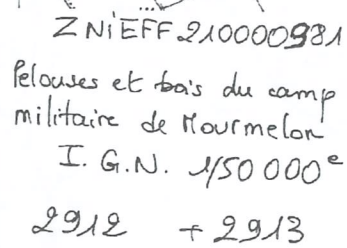 ZNiEFF 210000981
Pelouses et bois du camp
militaire de Mourmelon
I. G.N. 1/50 000e
2912 + 2913